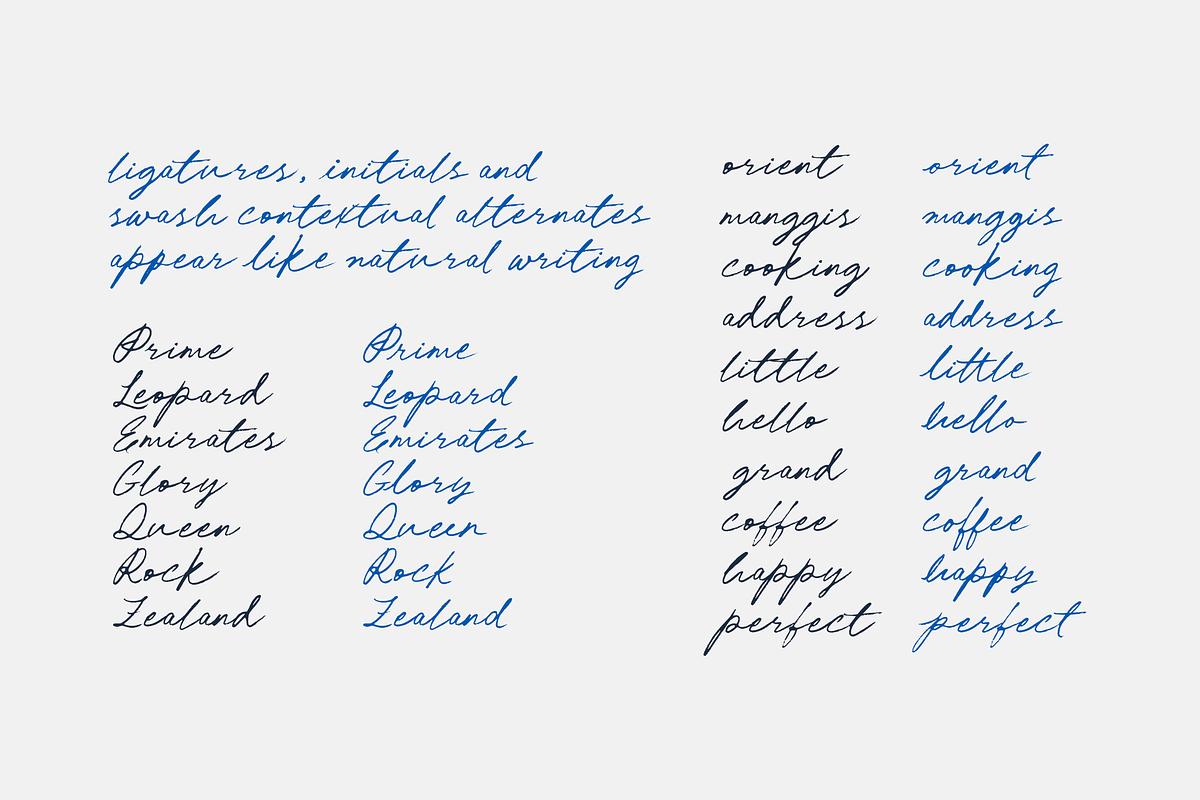 ligatures, initials and
swash contextual alternates
appear like natural writing
Prime Prime
Leopard Leopard
Emirates Emirates
Glory Glory
Queen Queen
Rock Rock
Zealand Zealand
orient orient
manggis manggis
cooking cooking
address address
little little
hello hello
grand grand
coffee coffee
happy happy
perfect perfect